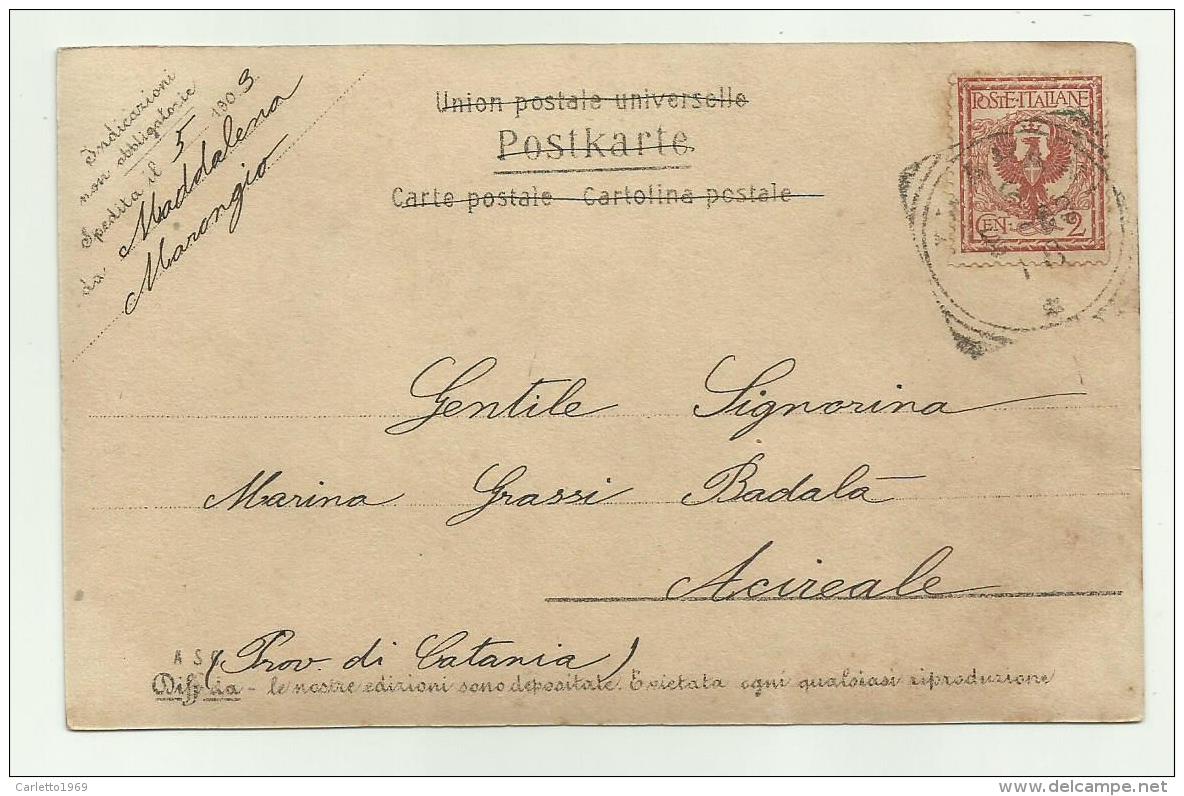 Indicazioni
non obbligatorie
Spedita il 5 1903
da Maddalena
Marongio
Union postale universelle
Postkarte
Carte postale - Cartolina postale
POSTE·ITALIANE
CEN. 2
Gentile Signorina
Marina Grassi Badalà
Acireale
(Prov. di Catania)
Diffida - le nostre edizioni sono depositate. E vietata ogni qualsiasi riproduzione
Carletto1969
delcampe.net